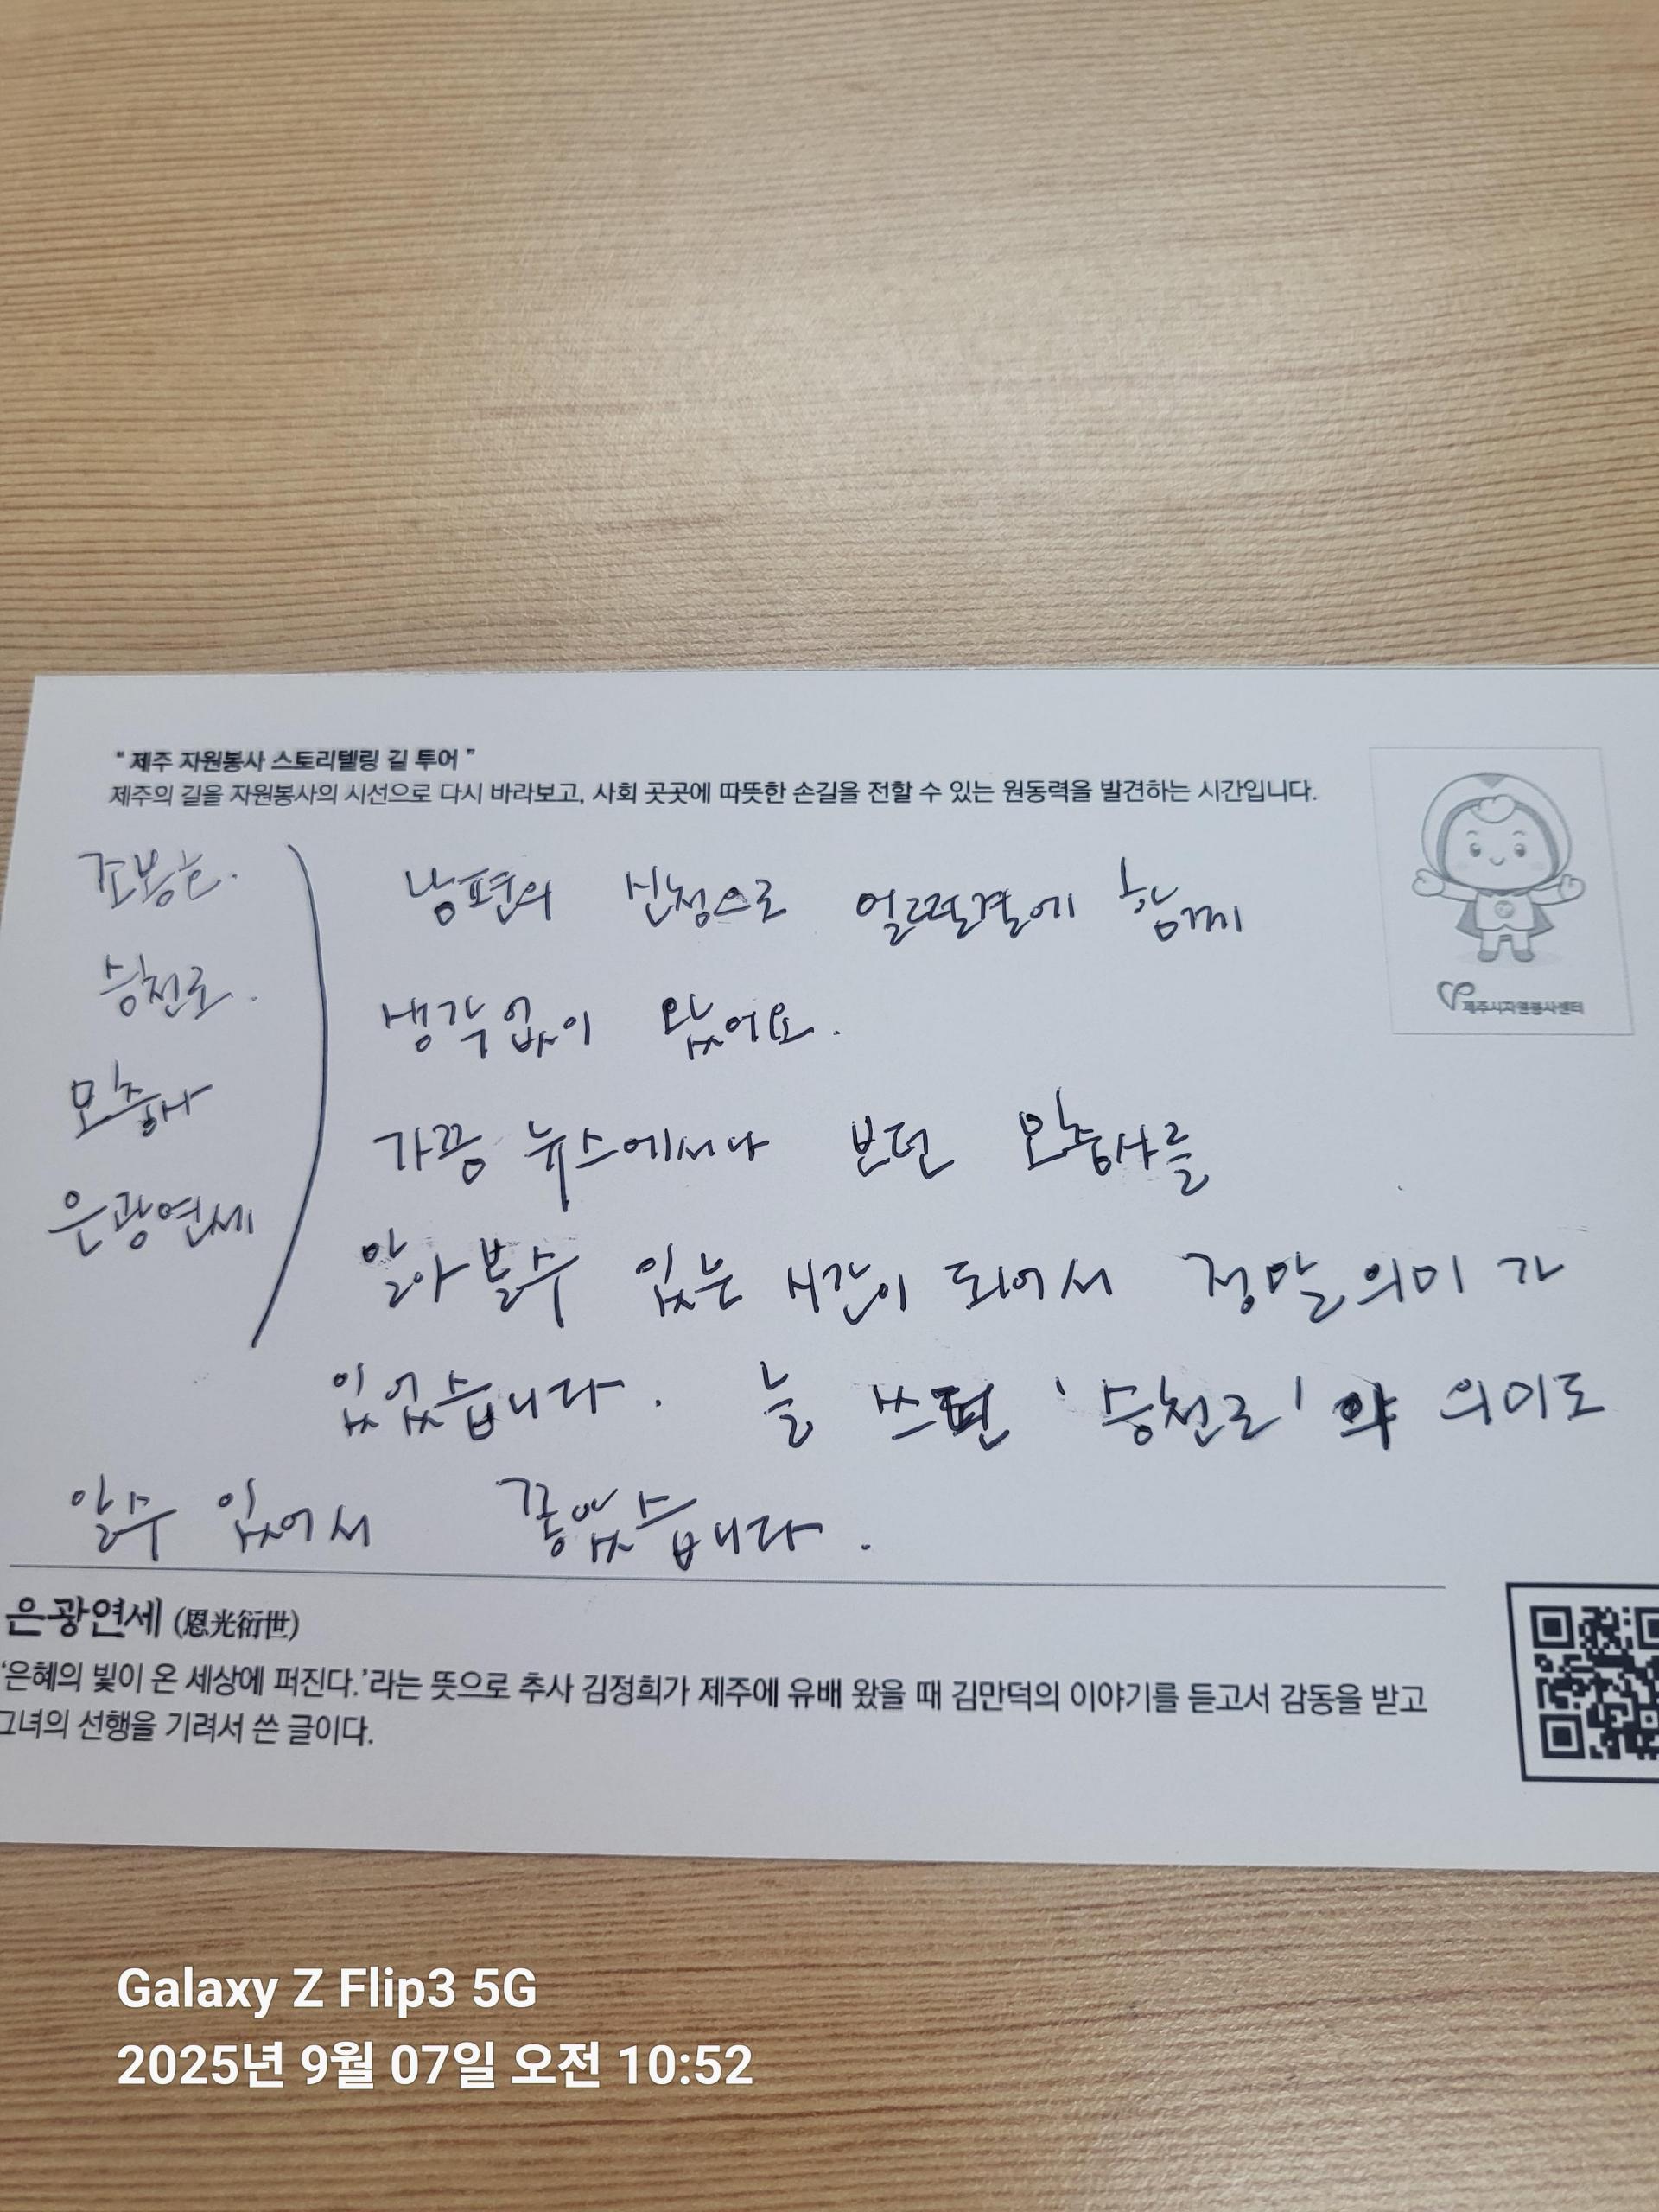 “ 제주 자원봉사 스토리텔링 길 투어 ”
제주의 길을 자원봉사의 시선으로 다시 바라보고, 사회 곳곳에 따뜻한 손길을 전할 수 있는 원동력을 발견하는 시간입니다.
제주시자원봉사센터
조봉호.
승천로.
모충사
은광연세
남편의 신청으로 얼떨결에 함께
생각없이 왔어요.
가끔 뉴스에서나 보던 모충사를
알아볼수 있는 시간이 되어서 정말 의미가
있었습니다. 늘 쓰던 '승천로' 의미도
알수 있어서 좋았습니다.
은광연세 (恩光衍世)
‘은혜의 빛이 온 세상에 퍼진다.’라는 뜻으로 추사 김정희가 제주에 유배 왔을 때 김만덕의 이야기를 듣고서 감동을 받고
그녀의 선행을 기려서 쓴 글이다.
Galaxy Z Flip3 5G
2025년 9월 07일 오전 10:52